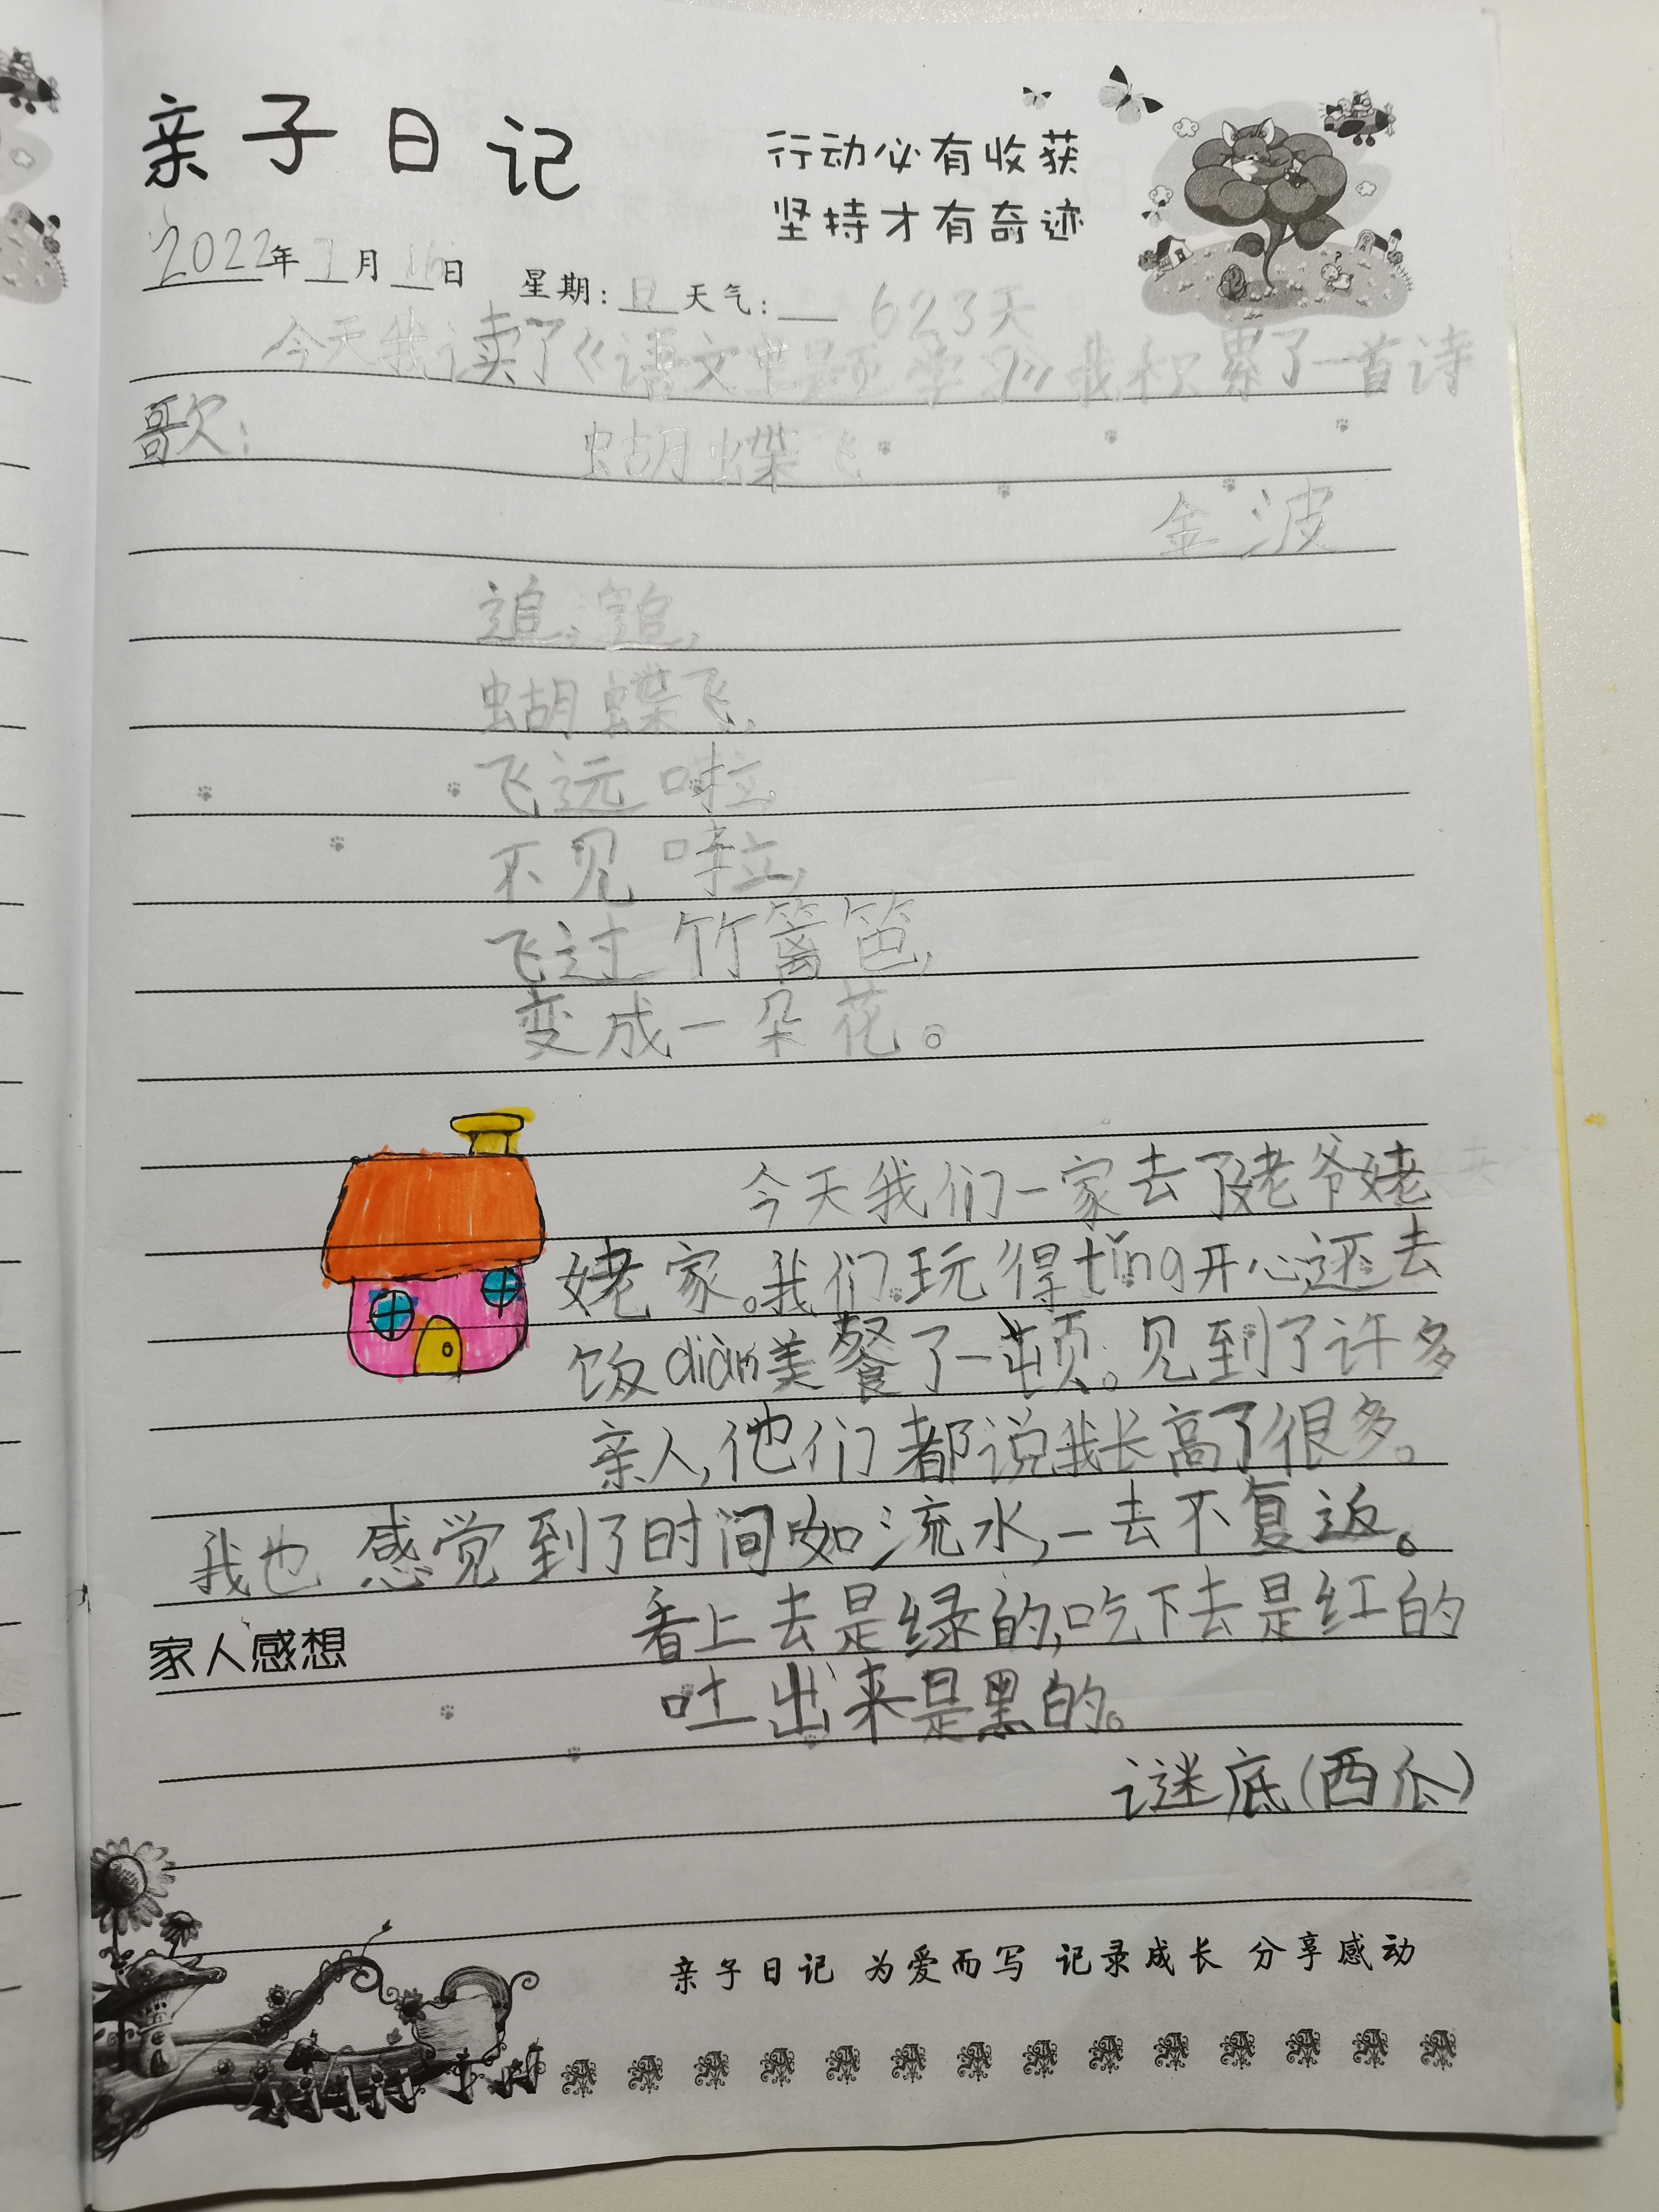 亲子日记
行动必有收获
坚持才有奇迹
2022年1月16日 星期:日 天气: 623天
今天我读了《语文主题学习》我积累了一首诗
歌:
蝴蝶飞
金波
追,追,
蝴蝶飞,
飞远啦,
不见啦,
飞过竹篱笆,
变成一朵花。
今天我们一家去了姥爷姥
姥家。我们玩得tǐng开心还去
饭diàn美餐了一顿。见到了许多
亲人,他们都说我长高了很多。
我也感觉到了时间如流水,一去不复返。
家人感想
看上去是绿的,吃下去是红的
吐出来是黑的。
谜底(西瓜)
亲子日记 为爱而写 记录成长 分享感动